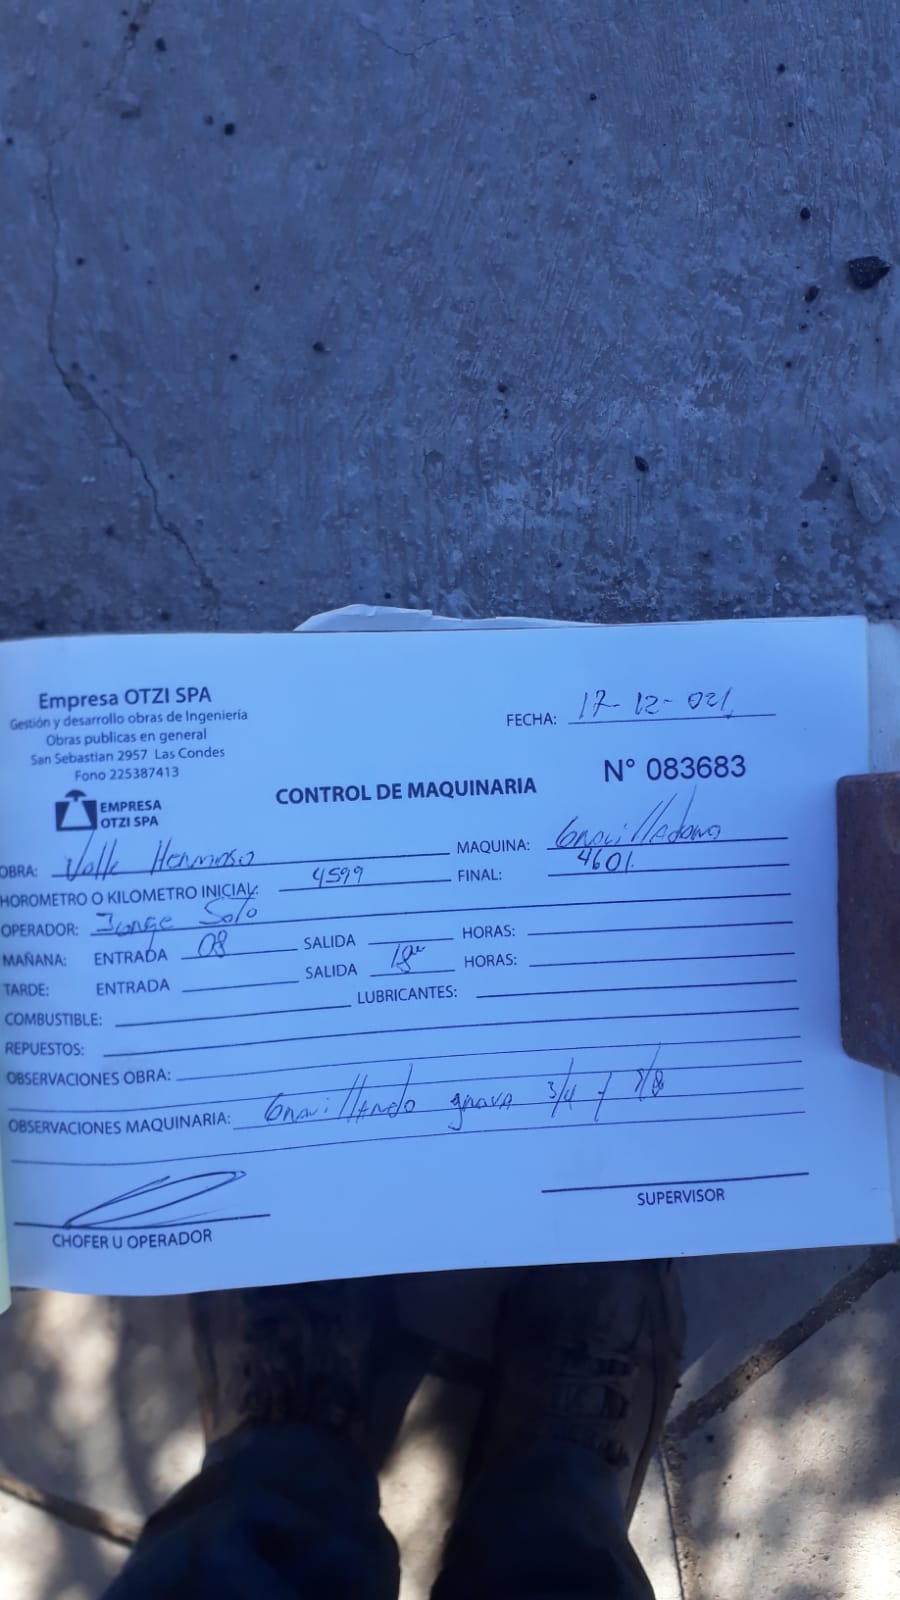 Empresa OTZI SPA
Gestión y desarrollo obras de Ingeniería
Obras publicas en general
San Sebastian 2957 Las Condes
Fono 225387413
EMPRESA
OTZI SPA
FECHA: 17-12-021
CONTROL DE MAQUINARIA
N° 083683
OBRA: Valle Hermoso MAQUINA: Gravilladora
HOROMETRO O KILOMETRO INICIAL: 4599 FINAL: 4601
OPERADOR: Jorge Soto
MAÑANA: ENTRADA 08 SALIDA HORAS:
TARDE: ENTRADA SALIDA 18 HORAS:
COMBUSTIBLE: LUBRICANTES:
REPUESTOS:
OBSERVACIONES OBRA:
OBSERVACIONES MAQUINARIA: Gravillando grava 3/4
CHOFER U OPERADOR
SUPERVISOR